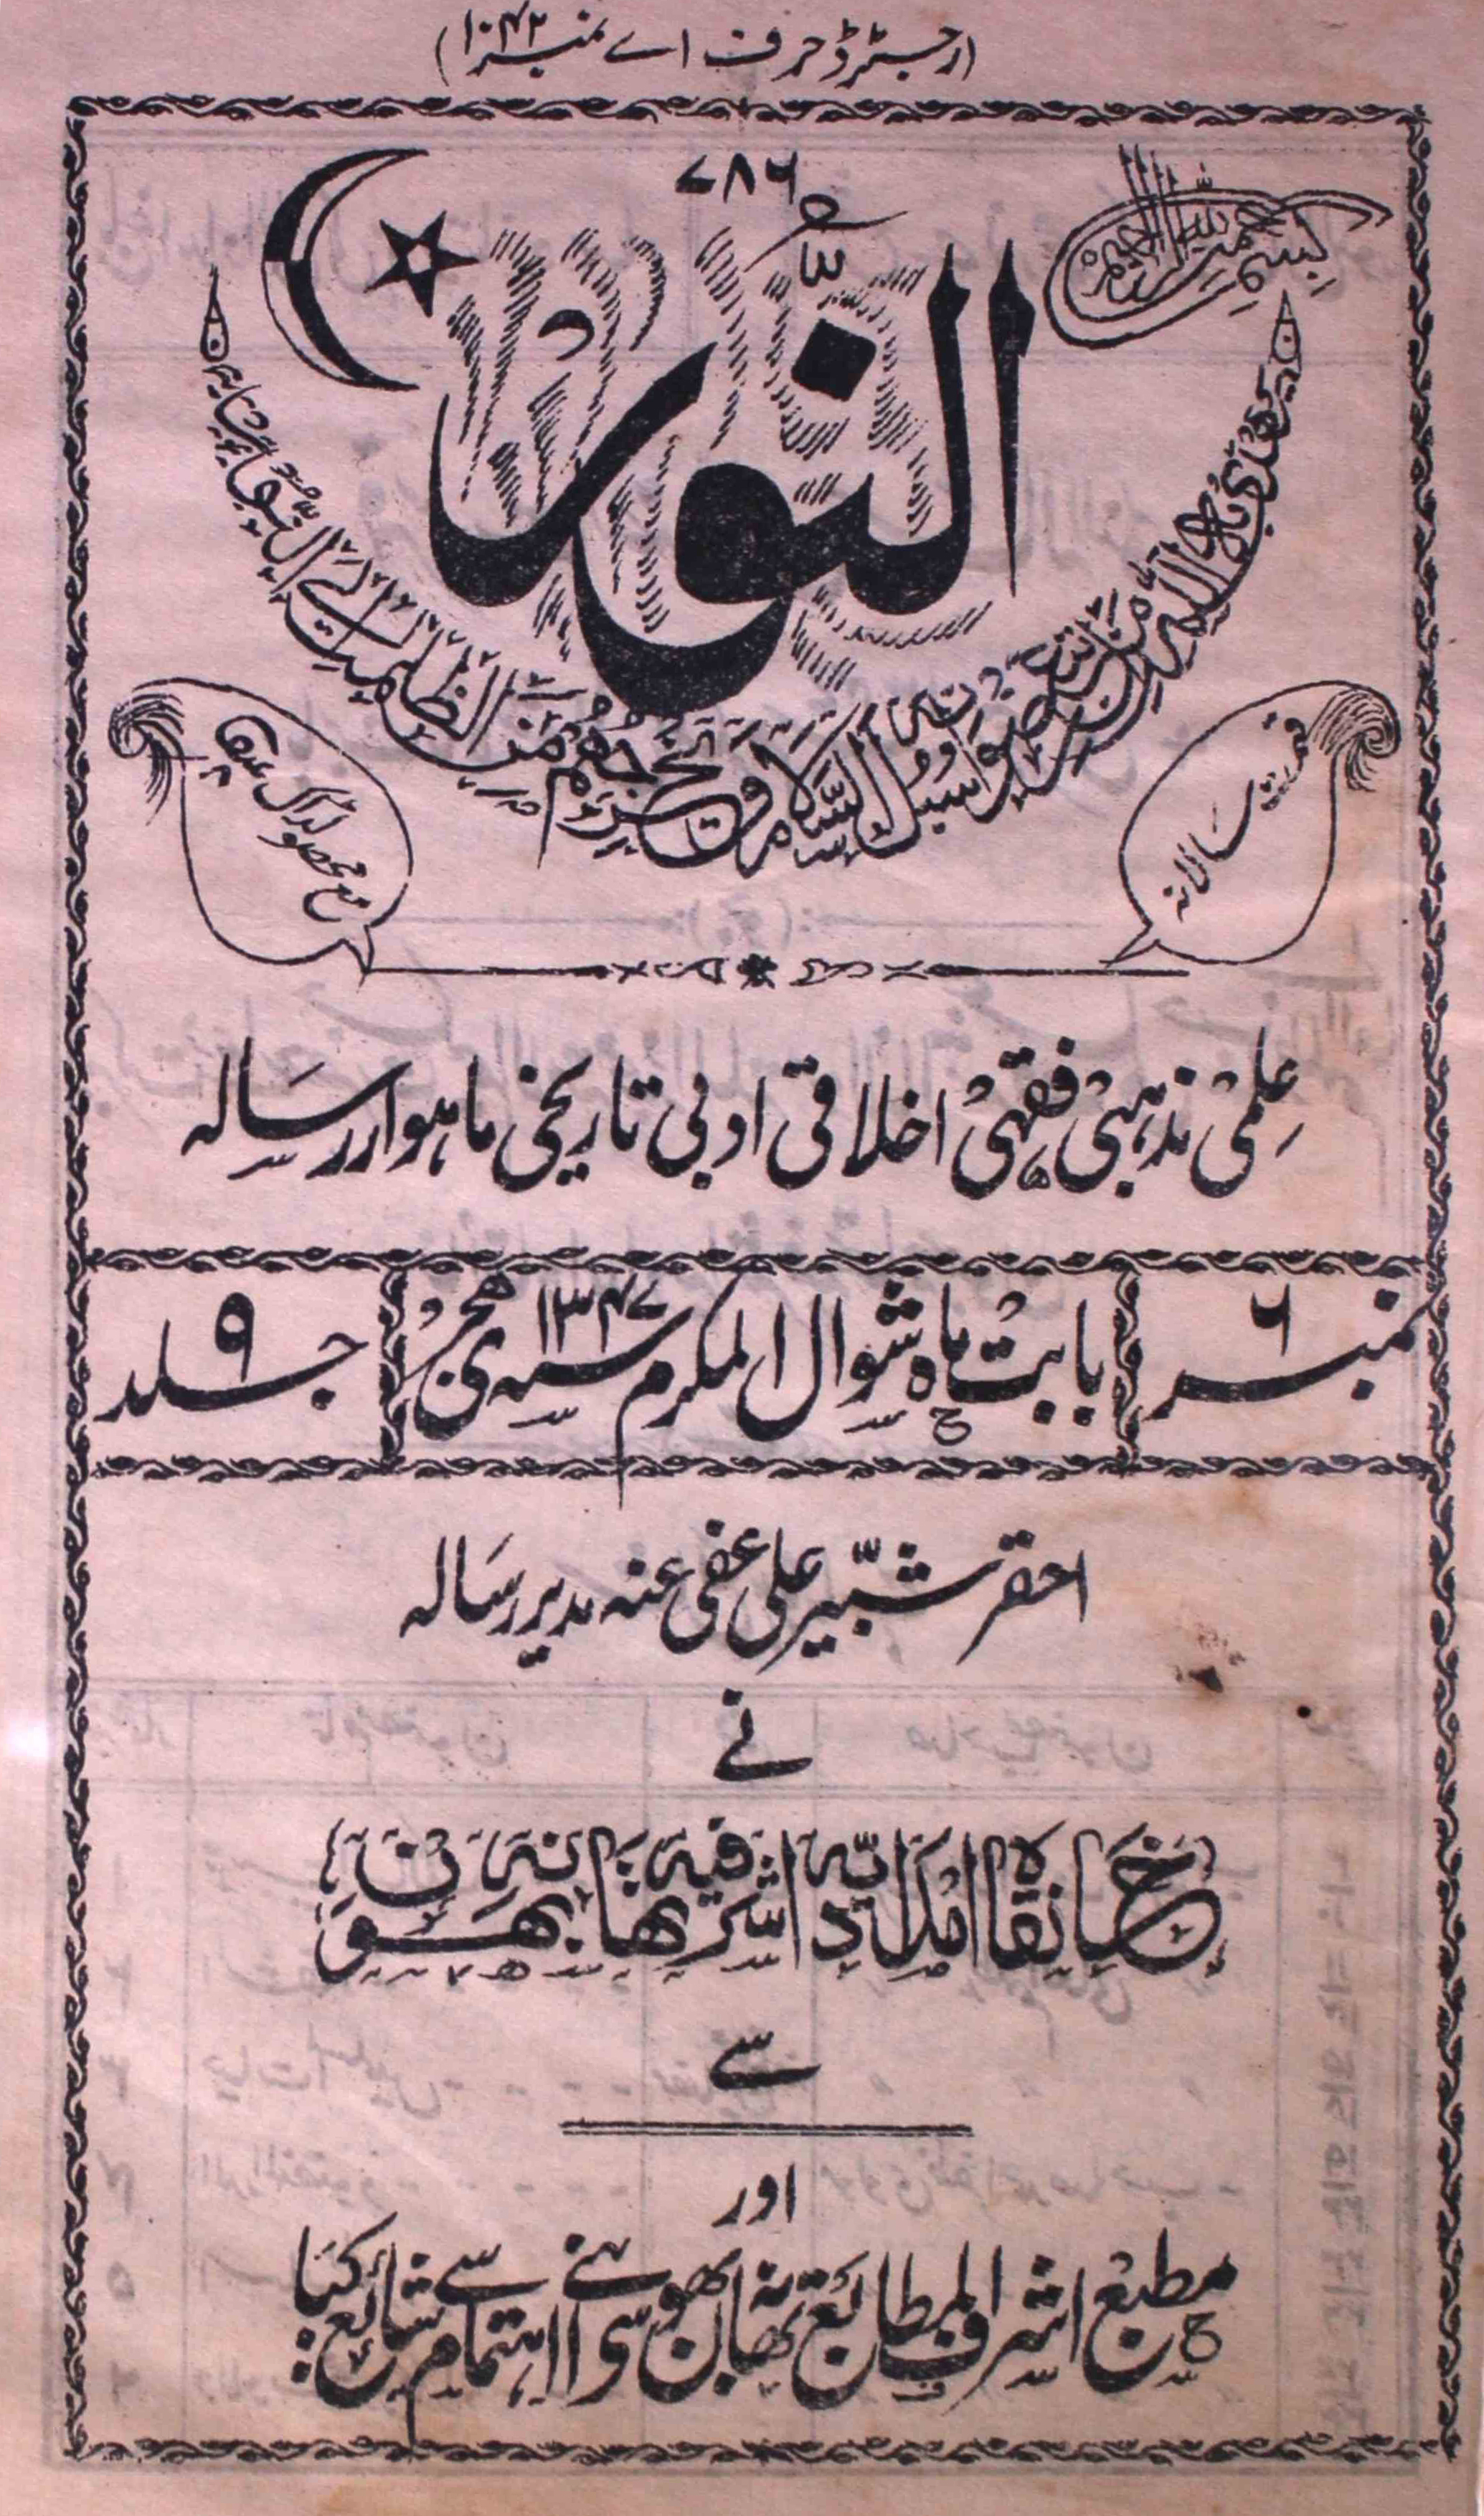 (رجسٹرڈ حرف اے نمبر ۱۰۴۲)
۷۸۶
بسم اللہ الرحمن الرحیم
النّور
یھدی بہ اللہ من اتبع رضوانہ سبل السلام ویخرجھم من الظلمت الی النور
قیمت سالانہ
مع محصول ڈاک
علمی مذہبی فقہی اخلاقی ادبی تاریخی ماہوار رسالہ
نمبر ۶
بابت ماہ شوال المکرم ۱۳۴۷ سنہ ہجری
جلد ۹
احقر شبّیر علی عفی عنہ مدیر رسالہ
نے
خانقاہ امدادیّہ اشرفیہ تھانہ بھون
سے
اور
مطبع اشرف المطابع تھانہ بھون سے اپنے اہتمام سے شائع کیا